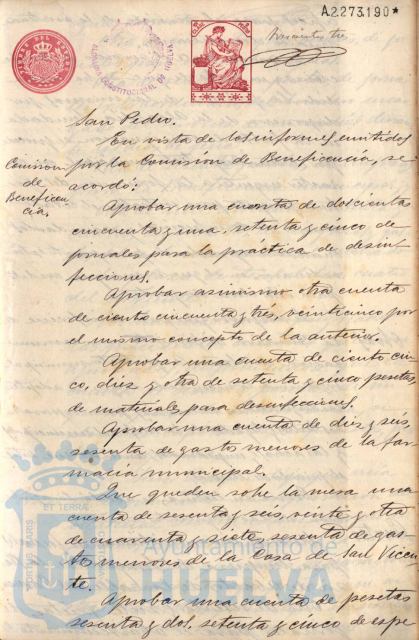 A.2.273.190*
ALCALDIA CONSTITUCIONAL DE HUELVA
San Pedro.
En vista de los informes emitidos
por la Comision de Beneficencia, se
acordó:
Comision
de
Beneficen
cia.
Aprobar una cuenta de doscientas
cincuenta y una, setenta y cinco de
jornales para la práctica de desin-
fecciones.
Aprobar asimismo otra cuenta
de ciento cincuenta y tres, veinticinco por
el mismo concepto de la anterior.
Aprobar una cuenta de ciento cin
co, diez y otra de setenta y cinco pesetas,
de materiales para desinfecciones.
Aprobar una cuenta de diez y seis,
sesenta de gastos menores de la far
macia municipal.
Que queden sobre la mesa una
cuenta de sesenta y seis, veinte y otra
de cuarenta y siete, sesenta de gas-
tos menores de la Casa de San Vicen
te.
Aprobar una cuenta de pesetas
sesenta y dos, setenta y cinco de espe
PORTUS MARIS
ET TERRAE
Ayuntamiento de
HUELVA